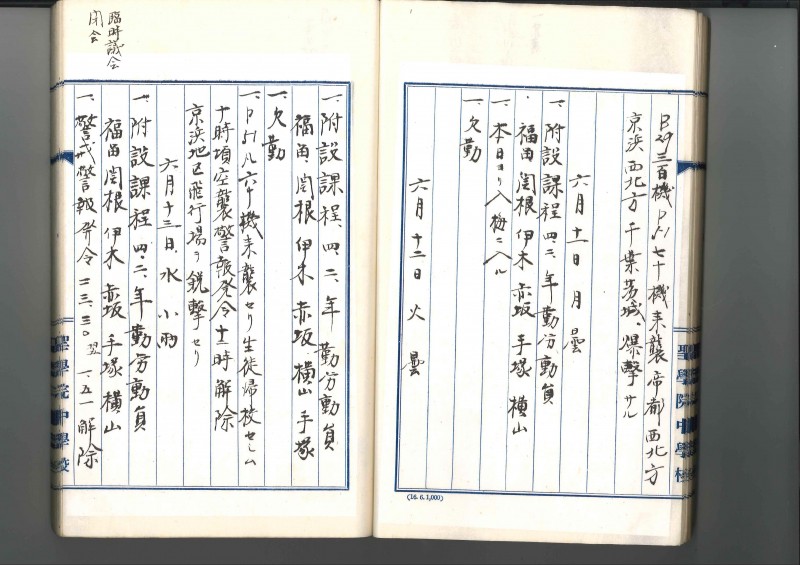 B29三百機P51七十機来襲帝都西北方
京浜西北方千葉茨城、爆撃サル
六月十一日 月 曇
一、附設課程四、二、年勤労動員
福田 関根 伊木 赤坂 手塚 横山
一、本日ヨリ入梅ニ入ル
一、欠勤
六月十二日 火 曇
聖学院中学校
(16. 6. 1,000)
臨時議会
閉会
一、附設課程、四、二、年勤労動員
福田 関根 伊木 赤坂 横山 手塚
一、欠勤
一、P51八六十機来襲セリ生徒帰校セシム
十時頃空襲警報発令十一時解除
京浜地区飛行場ヲ銃撃セリ
六月十三日 水 小雨
一、附設課程四、二、年勤労動員
福田 関根 伊木 赤坂 手塚 横山
一、警戒警報発令二三、三〇翌一、五一解除
聖学院中学校